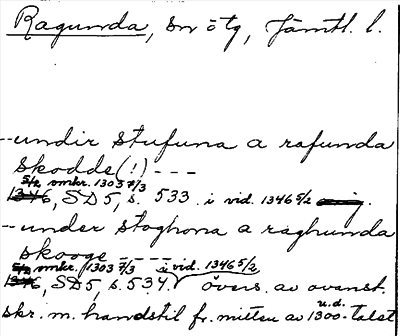 Ragunda, sn ötg, Jämtl. l.
--undir stufuna a rafunda
skodde(!) ---
5/2 omkr. 1303 7/3
1346, SD 5, s. 533. i vid. 1346 5/2
--under stoghona a raghunda
skooge ----
5/2 omkr. 1303 7/3 i vid. 1346 5/2
1346, SD 5 s. 534. övers. av ovanst.
u.d.
skr. m. handstil fr. mitten av 1300-talet